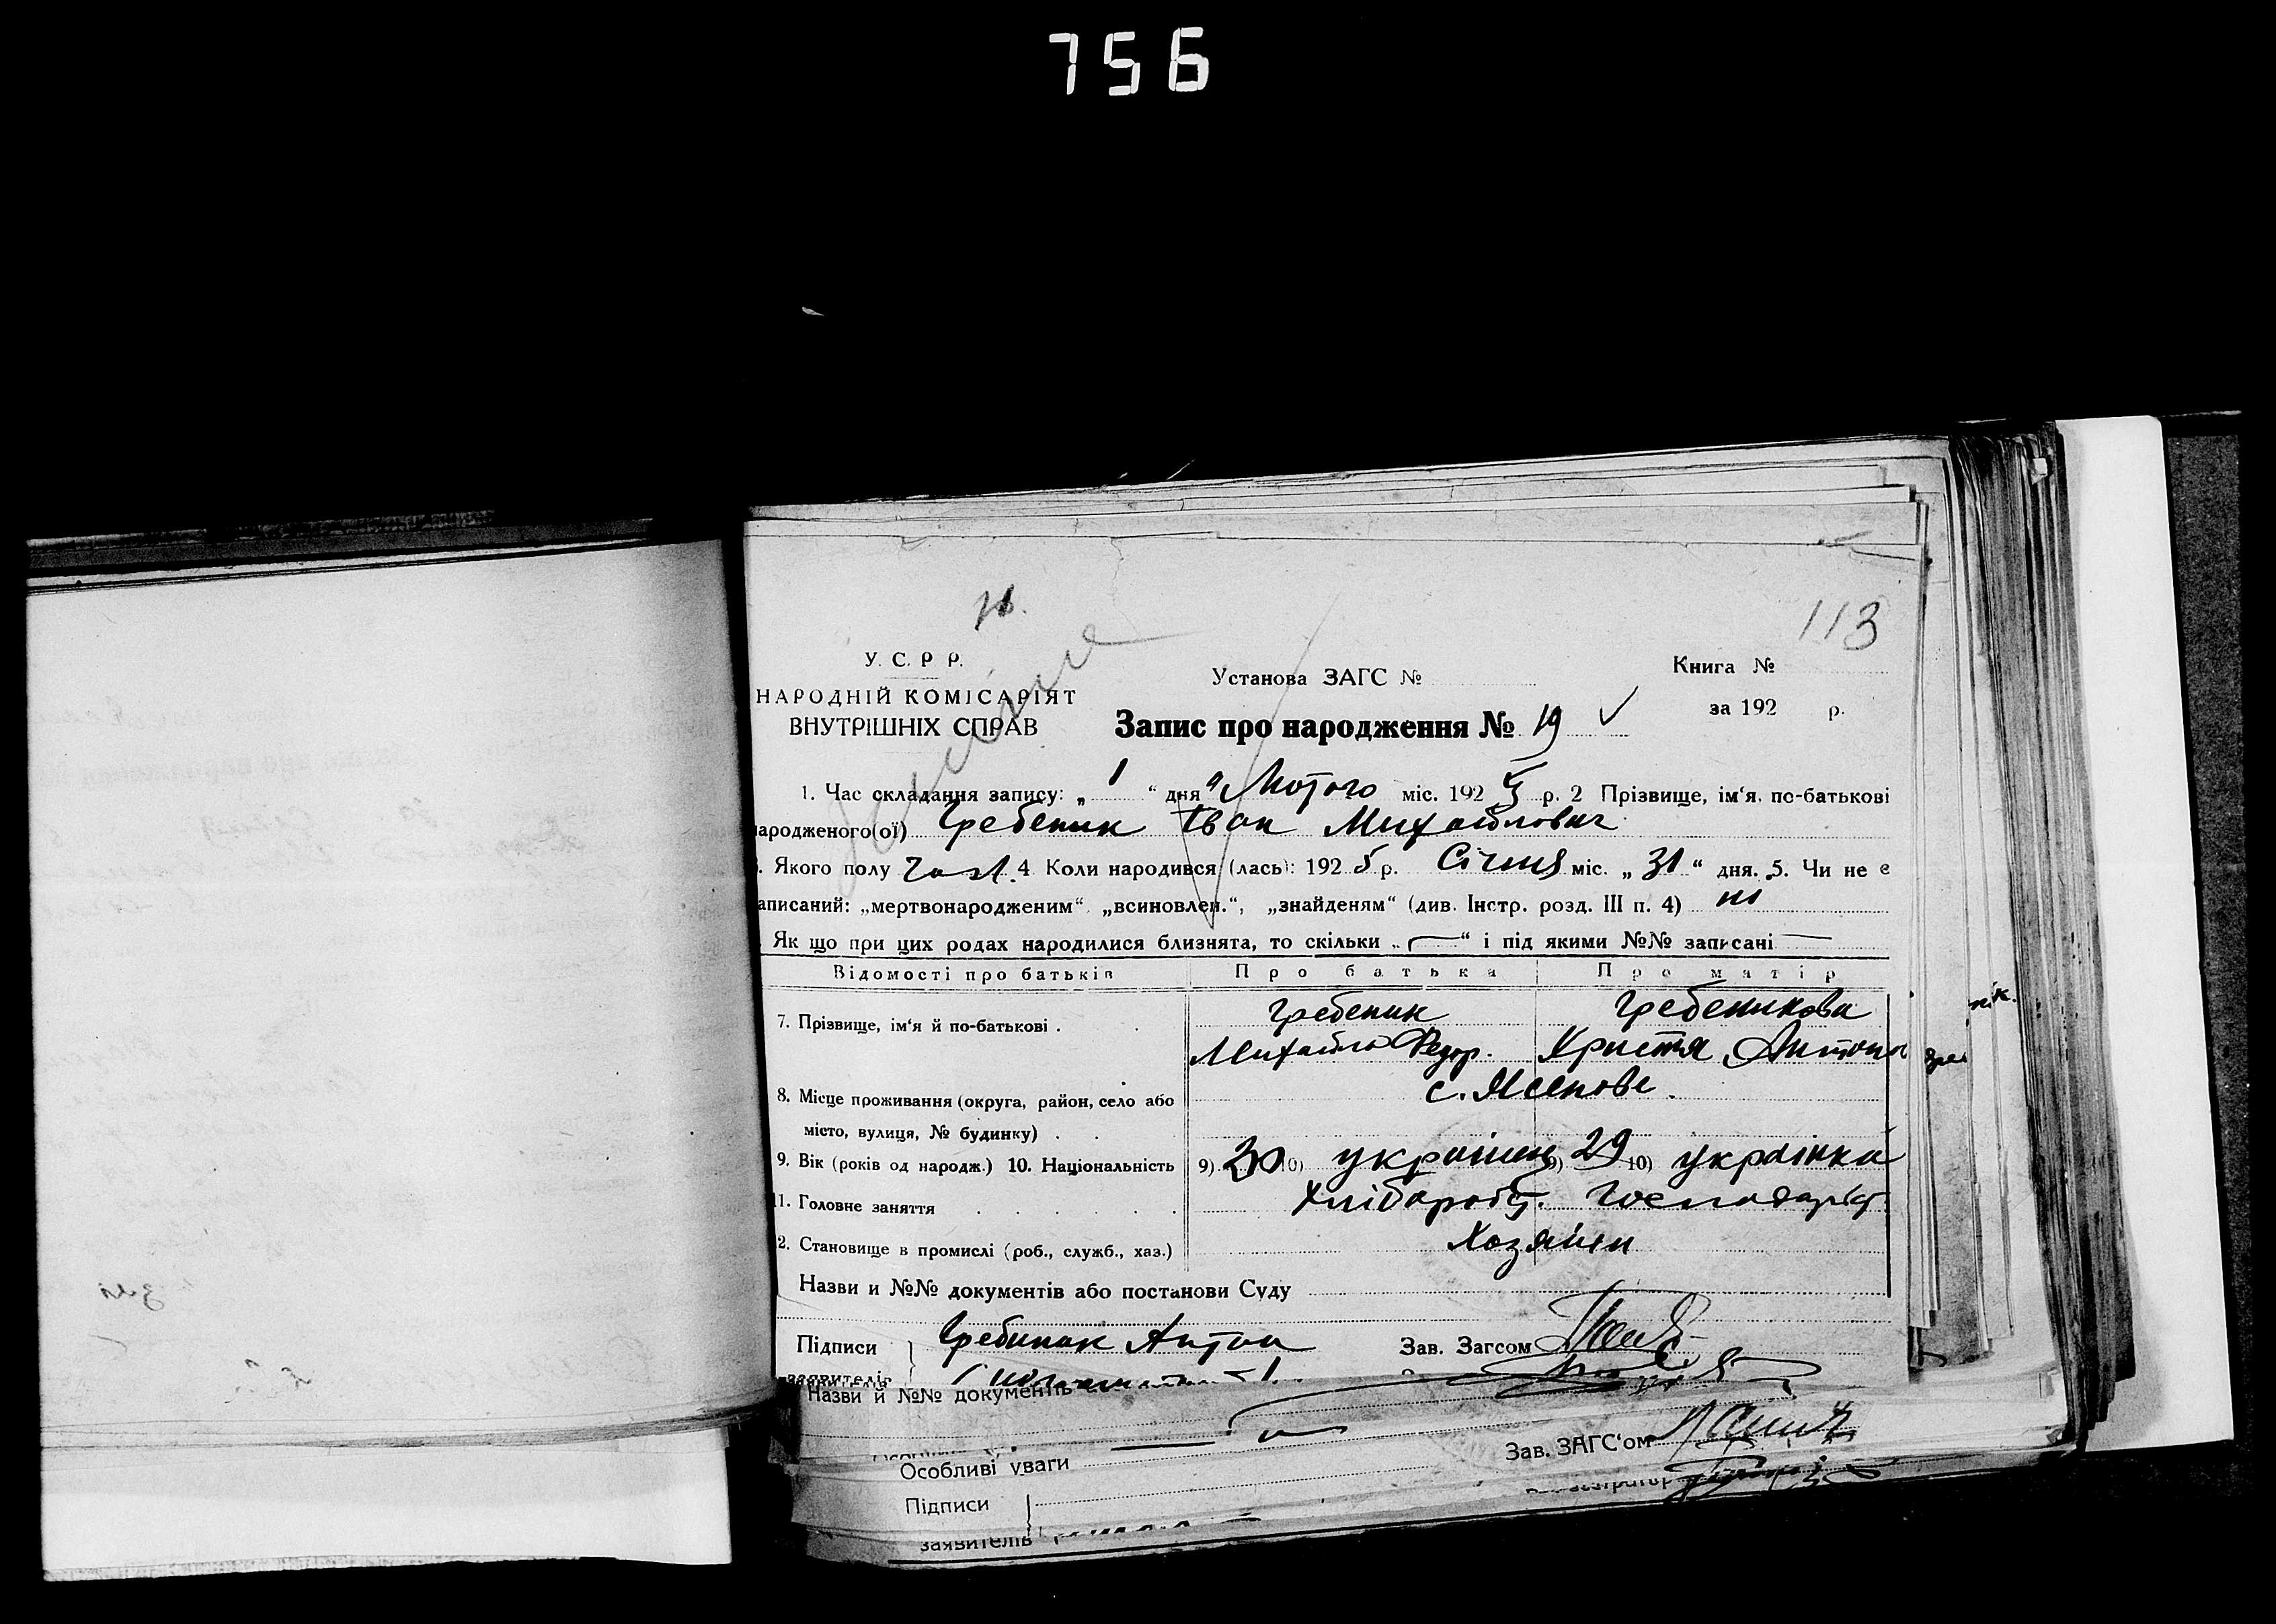 756
113
У. С. Р Р.
НАРОДНІЙ КОМІСАРІЯТ
ВНУТРІШНІХ СПРАВ
Установа ЗАГС №
Книга №
за 192 р.
Запис про народження № 19
1. Час складання запису: „ 1 “ дня „ Лютого міс. 192 5 р. 2 Прізвище, ім‘я, по-батькові
народженого(ої) Гребеник Іван Михайлович
Якого полу чол. 4 Коли народився (лась): 192 5 р. Січня міс. „ 31 “ дня. 5. Чи не є
аписаний: „мертвонародженим“, „всиновлен.“, „знайденям“ (див. Інстр. розд. III п. 4) ні
Як що при цих родах народилися близнята, то скільки „ — “ і під якими №№ записані —
Відомості про батьків Про батька Про матір
7. Прізвище, ім‘я й по-батькові . Гребеник Гребеникова
Михайло Федор. Христя Антона
8. Місце проживання (округа, район, село або с. Ясенове.
місто, вулиця, № будинку) .
9. Вік (років од народж.) 10. Національність 9) 30 10) українець 9) 29 10) українка
11. Головне заняття Хлібороб. Господарст
2. Становище в промислі (роб., служб., хаз.) Хозяїни
Назви и №№ документів або постанови Суду
Підписи Гребиник Антон Зав. Загсом
заявителів
Назви й №№ документів
Особливі уваги
Зав. ЗАГС‘ом
Підписи
заявителів